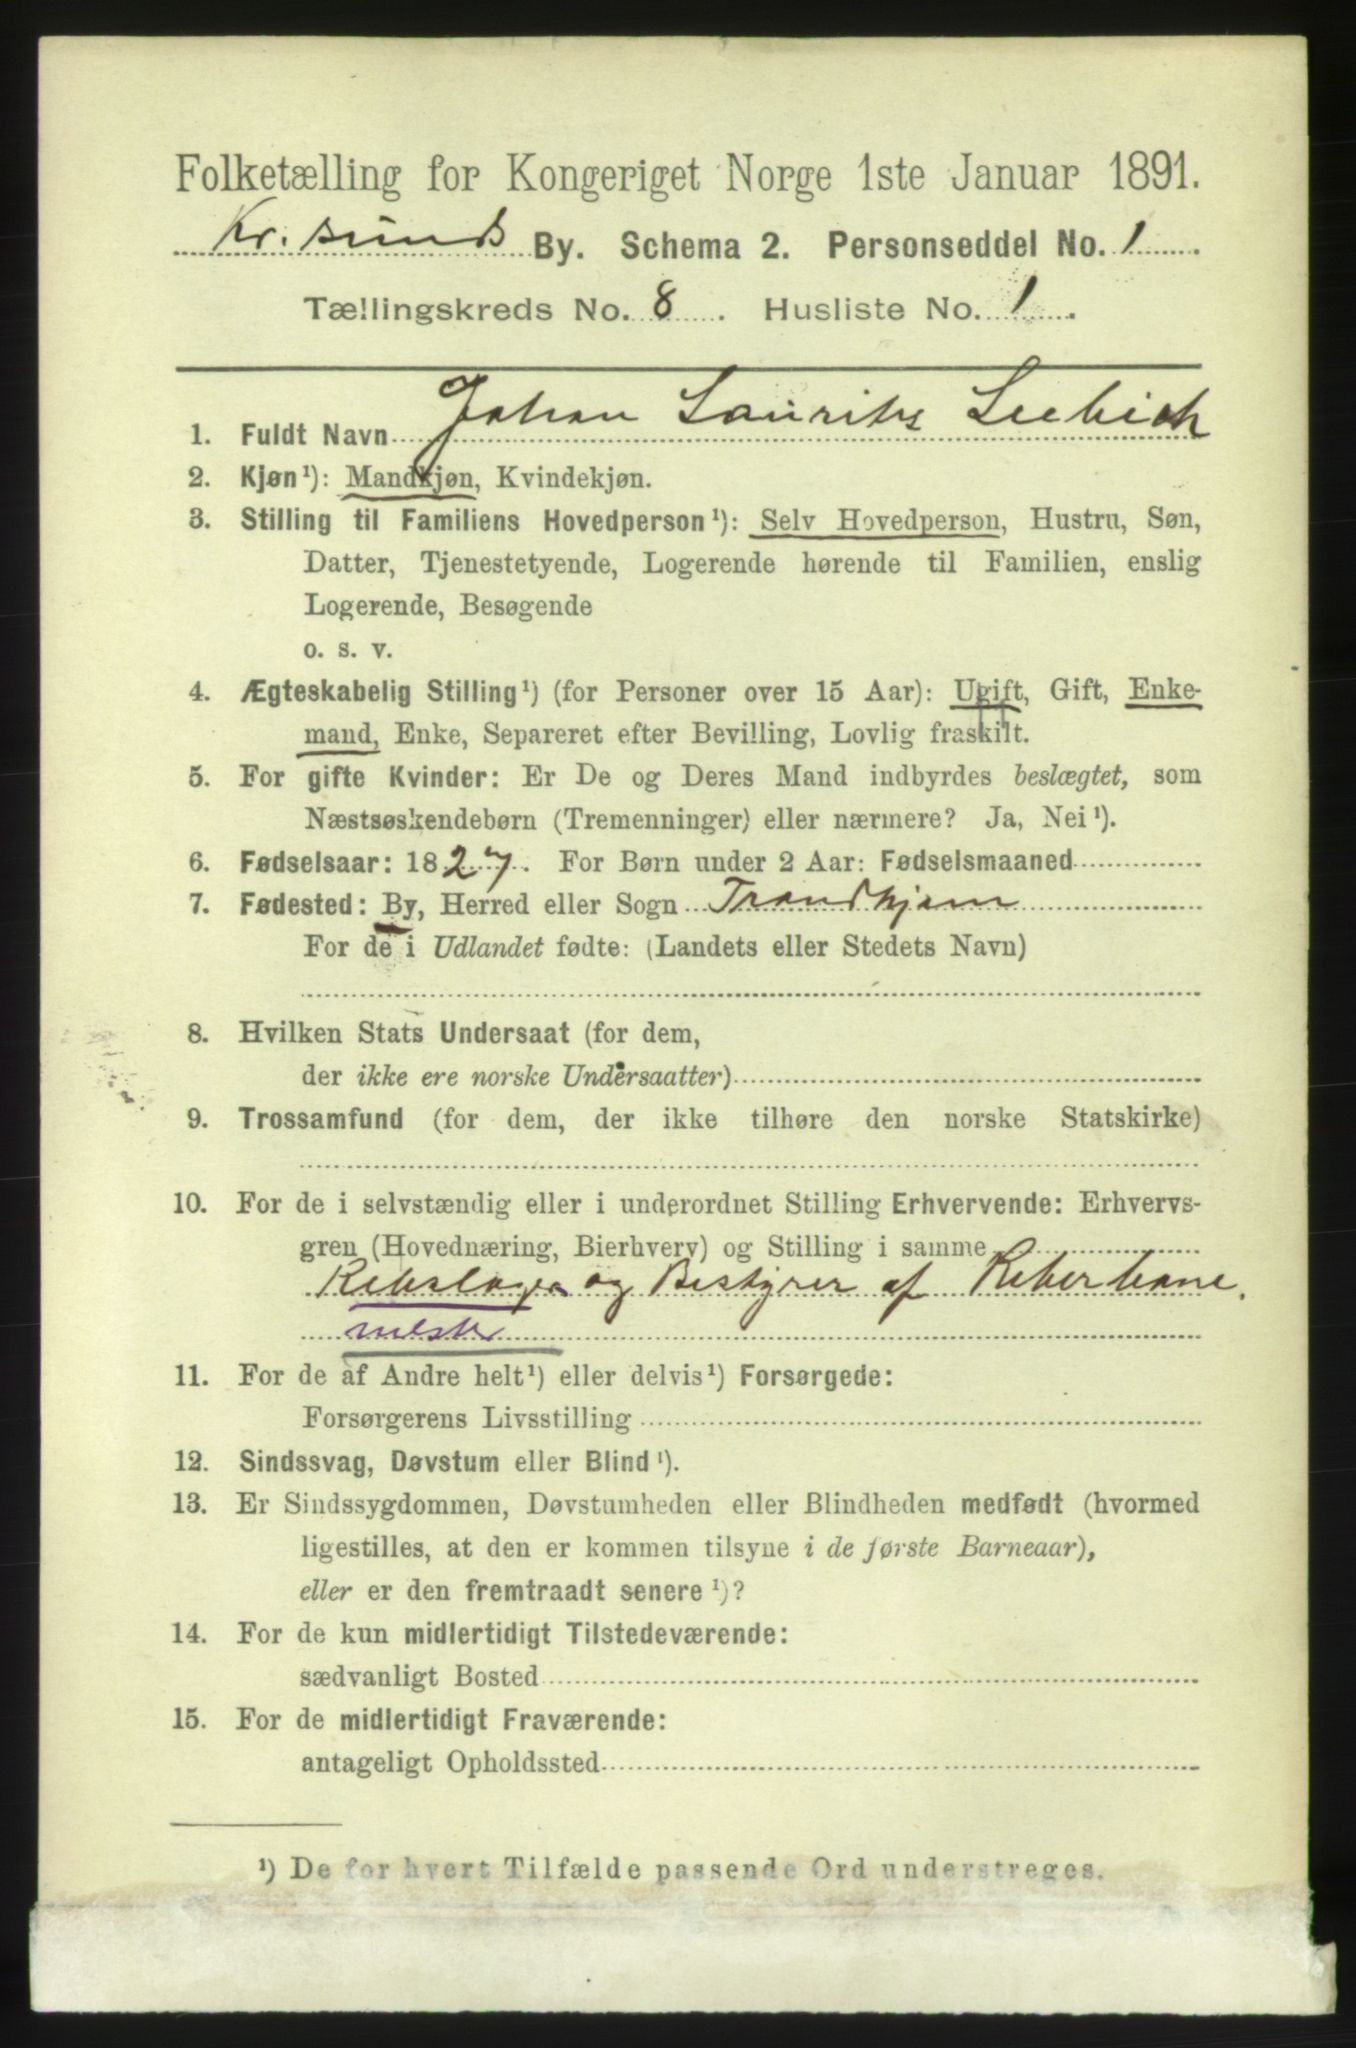 Folketælling for Kongeriget Norge 1ste Januar 1891.
Kr. sunds By. Schema 2. Personseddel No. 1
Tællingskreds No. 8. Husliste No. 1.
1. Fuldt Navn Johan Lauritz Liebich
2. Kjøn¹): Mandkjøn, Kvindekjøn.
3. Stilling til Familiens Hovedperson¹): Selv Hovedperson, Hustru, Søn,
Datter, Tjenestetyende, Logerende hørende til Familien, enslig
Logerende, Besøgende
o. s. v.
4. Ægteskabelig Stilling¹) (for Personer over 15 Aar): Ugift, Gift, Enke-
mand, Enke, Separeret efter Bevilling, Lovlig fraskilt.
5. For gifte Kvinder: Er De og Deres Mand indbyrdes beslægtet, som
Næstsøskendebørn (Tremenninger) eller nærmere? Ja, Nei¹).
6. Fødselsaar: 1827. For Børn under 2 Aar: Fødselsmaaned
7. Fødested: By, Herred eller Sogn Trondhjem
For de i Udlandet fødte: (Landets eller Stedets Navn)
8. Hvilken Stats Undersaat (for dem,
der ikke ere norske Undersaatter)
9. Trossamfund (for dem, der ikke tilhøre den norske Statskirke)
10. For de i selvstændig eller i underordnet Stilling Erhvervende: Erhvervs-
gren (Hovednæring, Bierhverv) og Stilling i samme
Rebslager og Bestyrer af Reberbane.
mester
11. For de af Andre helt¹) eller delvis¹) Forsørgede:
Forsørgerens Livsstilling
12. Sindssvag, Døvstum eller Blind¹).
13. Er Sindssygdommen, Døvstumheden eller Blindheden medfødt (hvormed
ligestilles, at den er kommen tilsyne i de første Barneaar),
eller er den fremtraadt senere¹)?
14. For de kun midlertidigt Tilstedeværende:
sædvanligt Bosted
15. For de midlertidigt Fraværende:
antageligt Opholdssted
¹) De for hvert Tilfælde passende Ord understreges.